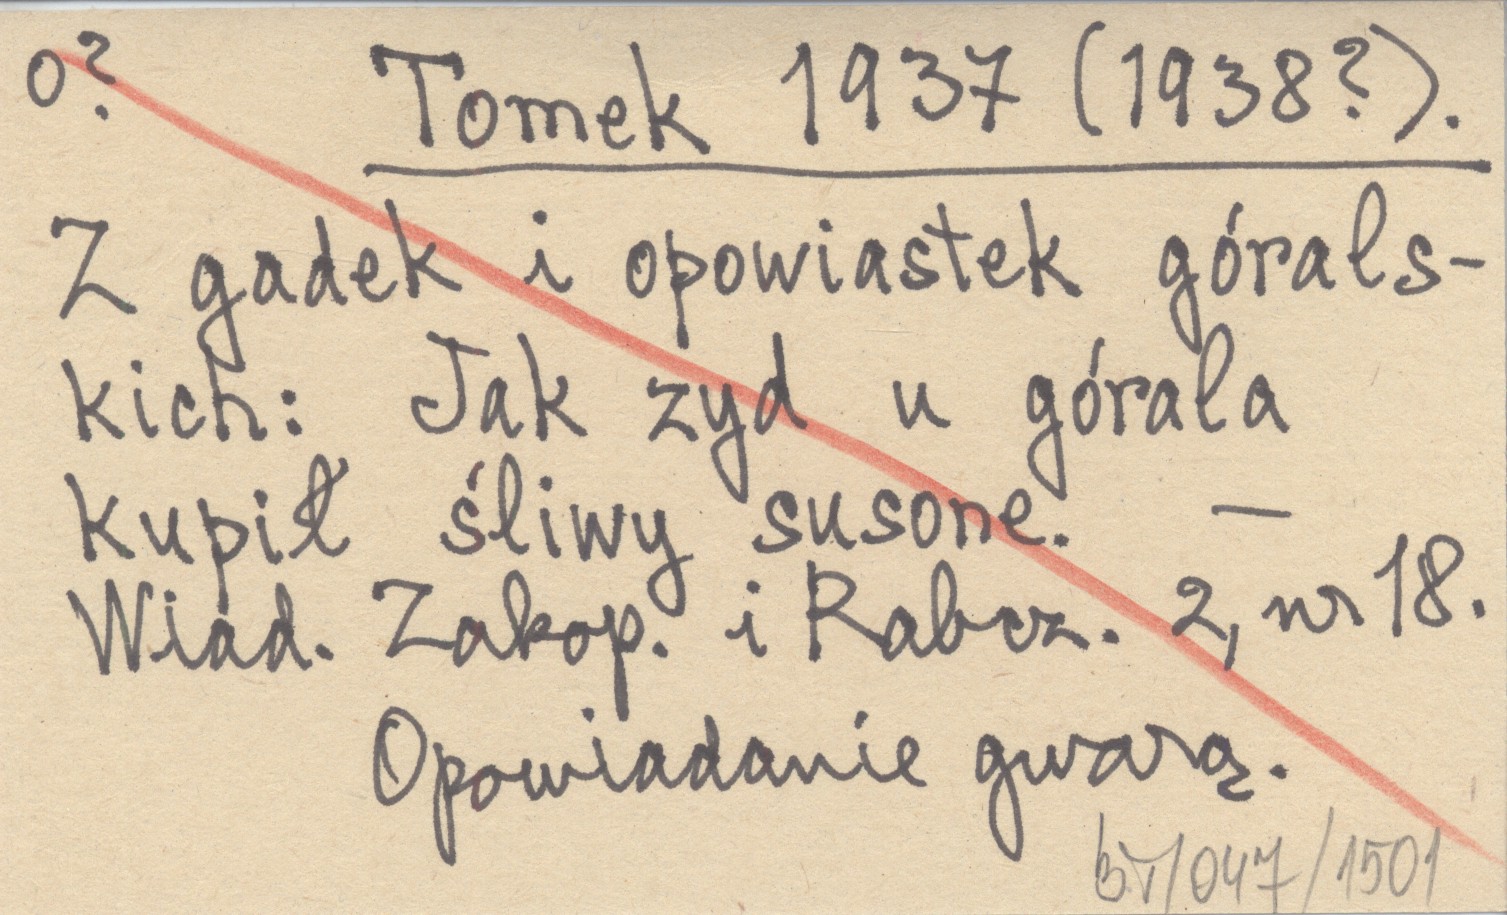 o? Tomek 1937 (1938?).
Z gadek i opowiastek górals-
kich: Jak zyd u górala
kupił śliwy susone. —
Wiad. Zakop. i Rabcz. 2, nr 18.
Opowiadanie gwarą.
br/047/1501